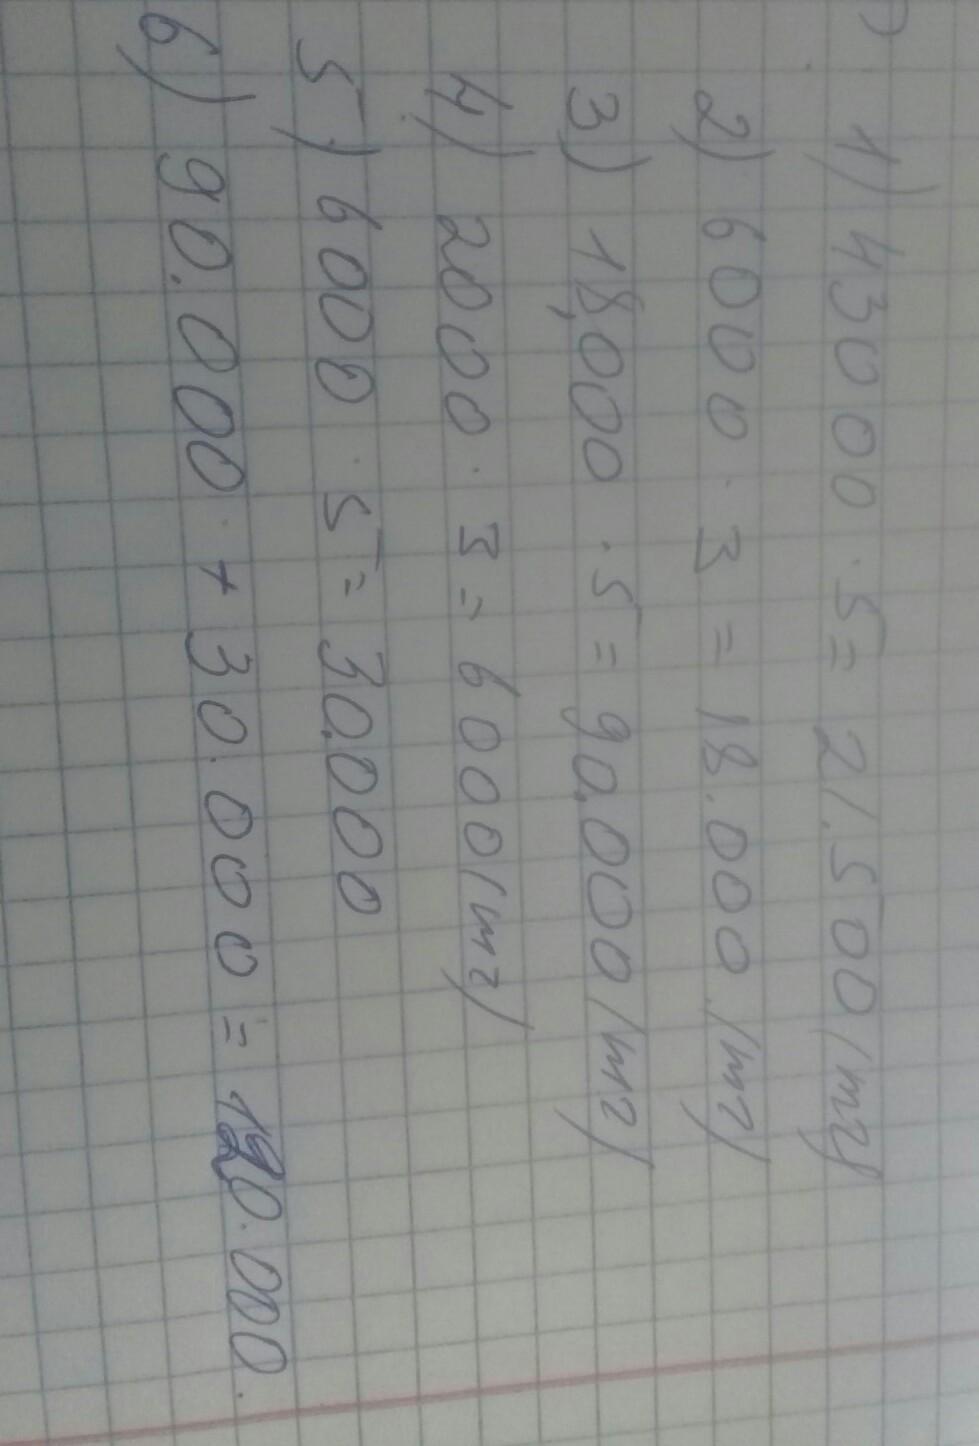 1) 43000 · 5 = 21.500 (тг)
2) 6000 · 3 = 18.000 (тг)
3) 18,000 · 5 = 90.000 (тг)
4) 2000 · 3 = 6000 (тг)
5) 6000 · 5 = 30.000
6) 90.000 + 30.000 = 120.000.